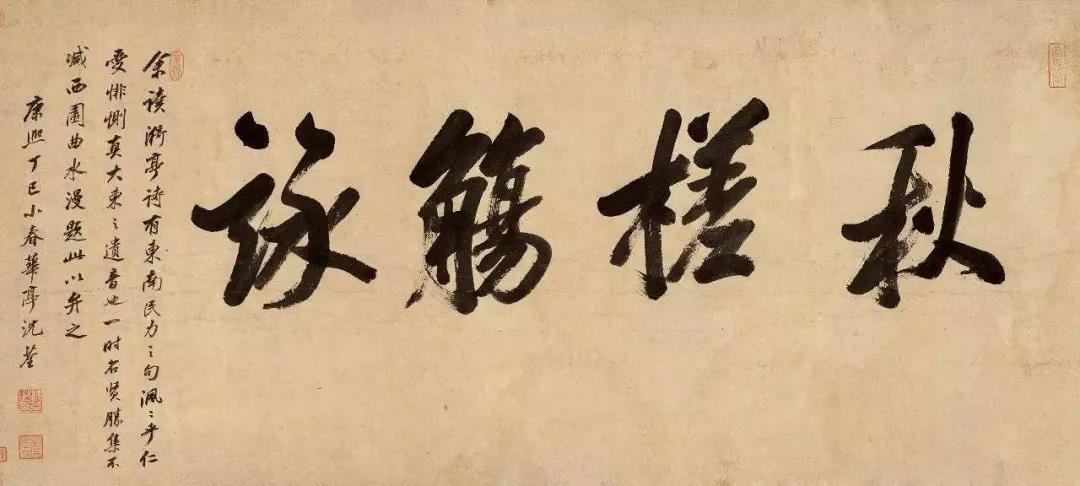 秋槎觴詠
余读漪亭诗有東南民力〻句渢〻乎仁
愛悱惻真大東〻遺音也一时名贤勝集不
减西園曲水漫题此以弁之
康熙丁巳小春華亭沈荃